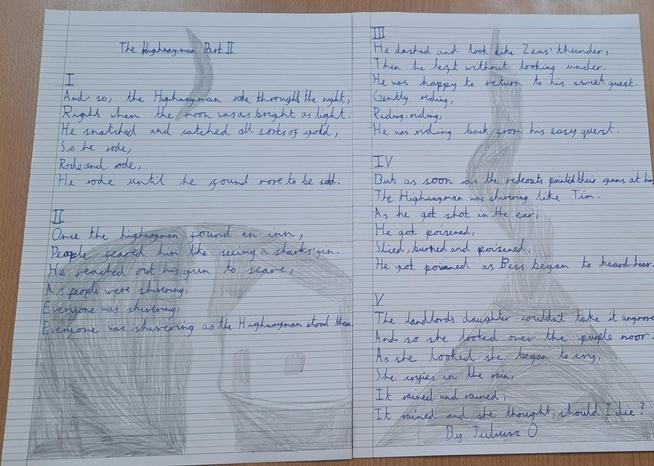 The Highwayman Part II
I
And so, the Highwayman rode through the night,
Right when the moon was as bright as light.
He snatched and catched all sorts of gold,
So he rode,
Rode and rode,
He rode until he found more to be sold.
II
Once the highwayman found an inn,
People feared him like seeing a sharks' fin.
He reached out his gun to scare,
As people were shivering,
Everyone was shivering,
Everyone was shivering as the Highwayman stood there.
III
He dashed and look like Zeus' thunder,
Then he left without looking under.
He was happy to return to his sweet guest.
Gently riding,
Riding, riding,
He was riding back from his easy quest.
IV
But as soon as the redcoats pointed their guns at
The Highwayman was shivering like Tim.
As he got shot in the ear,
He got poisened,
Sliced, burned and poisened,
He got poisened as Bess began to heard hear.
V
The landlord's daughter couldn't take it anymore
And so she looked over the purple moor.
As she looked she began to cry,
She in the rain,
It rained and rained,
It rained and she thought, should I die?
By Juliusz O